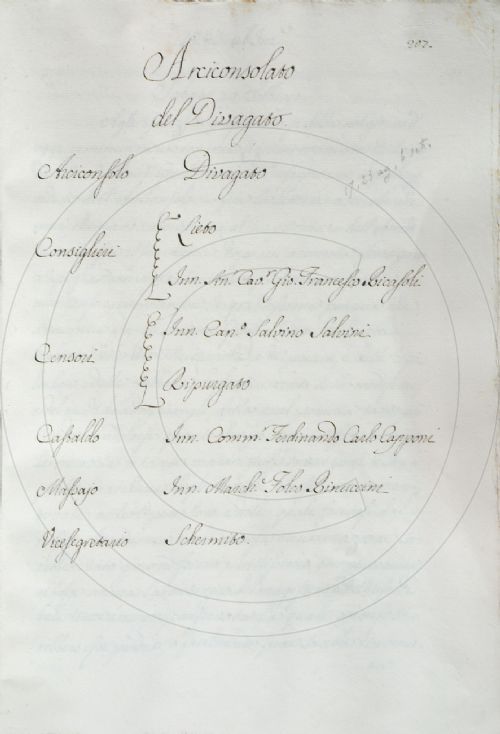 207.
Arciconsolato
del Divagato
Arciconsolo Divagato
17, 23 ag, 6 set.
Consiglieri Lieto
Inn. An. Cav.r Gio. Francesco Ricasoli
Censori Inn. Can.o Salvino Salvini
Ripurgato
Castaldo Inn. Comm.r Ferdinando Carlo Capponi
Massajo Inn. March.e Folco Rinuccini
Vicesegretario Schermito.